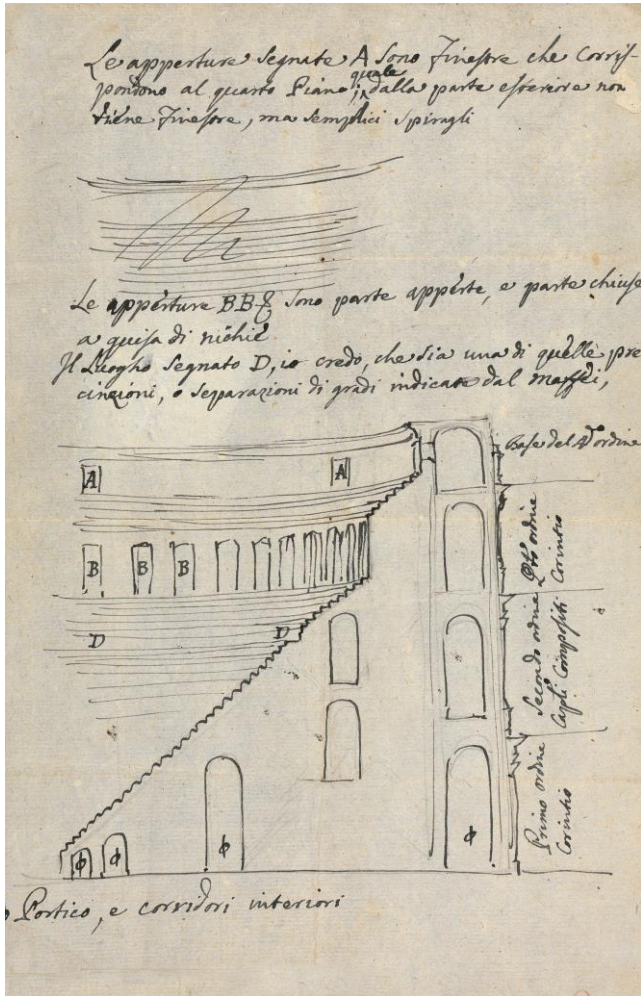 Le apperture segnate A sono finestre che corris-
pondono al quarto Piano, quale dalla parte esteriore non
tiene finestre, ma semplici spiragli
Le apperture BB& sono parte apperte, e parte chiuse
a guisa di nichie
Il Luogho segnato D, io credo, che sia una di quelle pre
cinzioni, o separazioni di gradi indicate dal Maffei,
Base del 4º ordine
A A
B B B
D D
ordine Corintio
Secondo ordine
Capli Compositi
Primo ordine
Corintio
ϕ ϕ ϕ ϕ
Portico, e corridori interiori